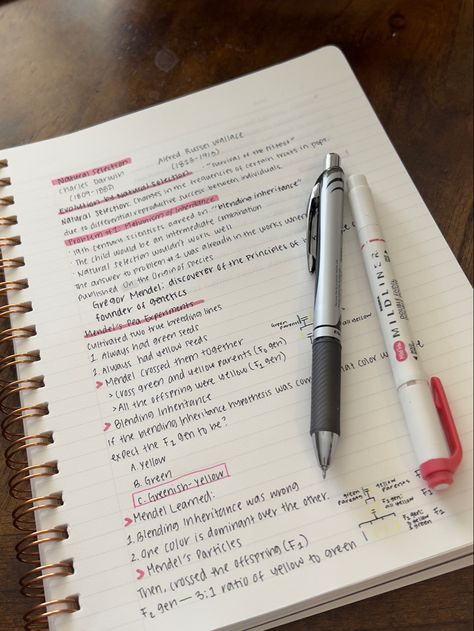 Natural selection
Charles Darwin Alfred Russel Wallace
(1809-1882) (1823-1913)
Evolution by Natural selection - "survival of the fittest"
Natural selection: Changes in the frequencies of certain traits in popu.
due to differential reproductive success between individuals.
Problem #1 Mechanism of Inheritance
19th century scientists agreed on "blending inheritance"
· The child would be an intermediate combination
· Natural selection wouldn't work well
The answer to problem #1 was already in the works when
published On the Origin of Species
Gregor Mendel: discoverer of the principles of
founder of genetics
Mendel's Pea Experiments
cultivated two true breeding lines
1. Always had green seeds
2. Always had yellow seeds
> Mendel crossed them together
> Cross green and yellow parents (F₀ gen)
> All the offspring were yellow (F₁ gen)
> Blending Inheritance
If the blending inheritance hypothesis was
color
expect the F₂ gen to be?
A. Yellow
B. Green
C. Greenish-yellow
> Mendel Learned:
1. Blending inheritance was wrong
2. One color is dominant over the other.
> Mendel's Particles
Then, crossed the offspring (F₁)
F₂ gen — 3:1 ratio of yellow to green
green
parents
all yellow
green
parents
yellow
parents
F₁ gen:
all yellow
F₂ gen:
3 yellow
1 green
MILDLINER